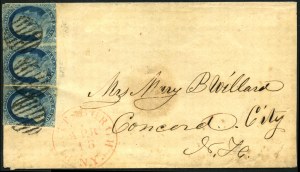 Mrs Mary B Willard
Concord. City
N. H.
N.Y.